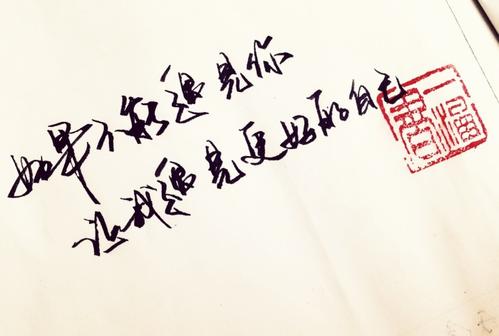 如果不能遇见你
让我遇见更好的自己
一福書